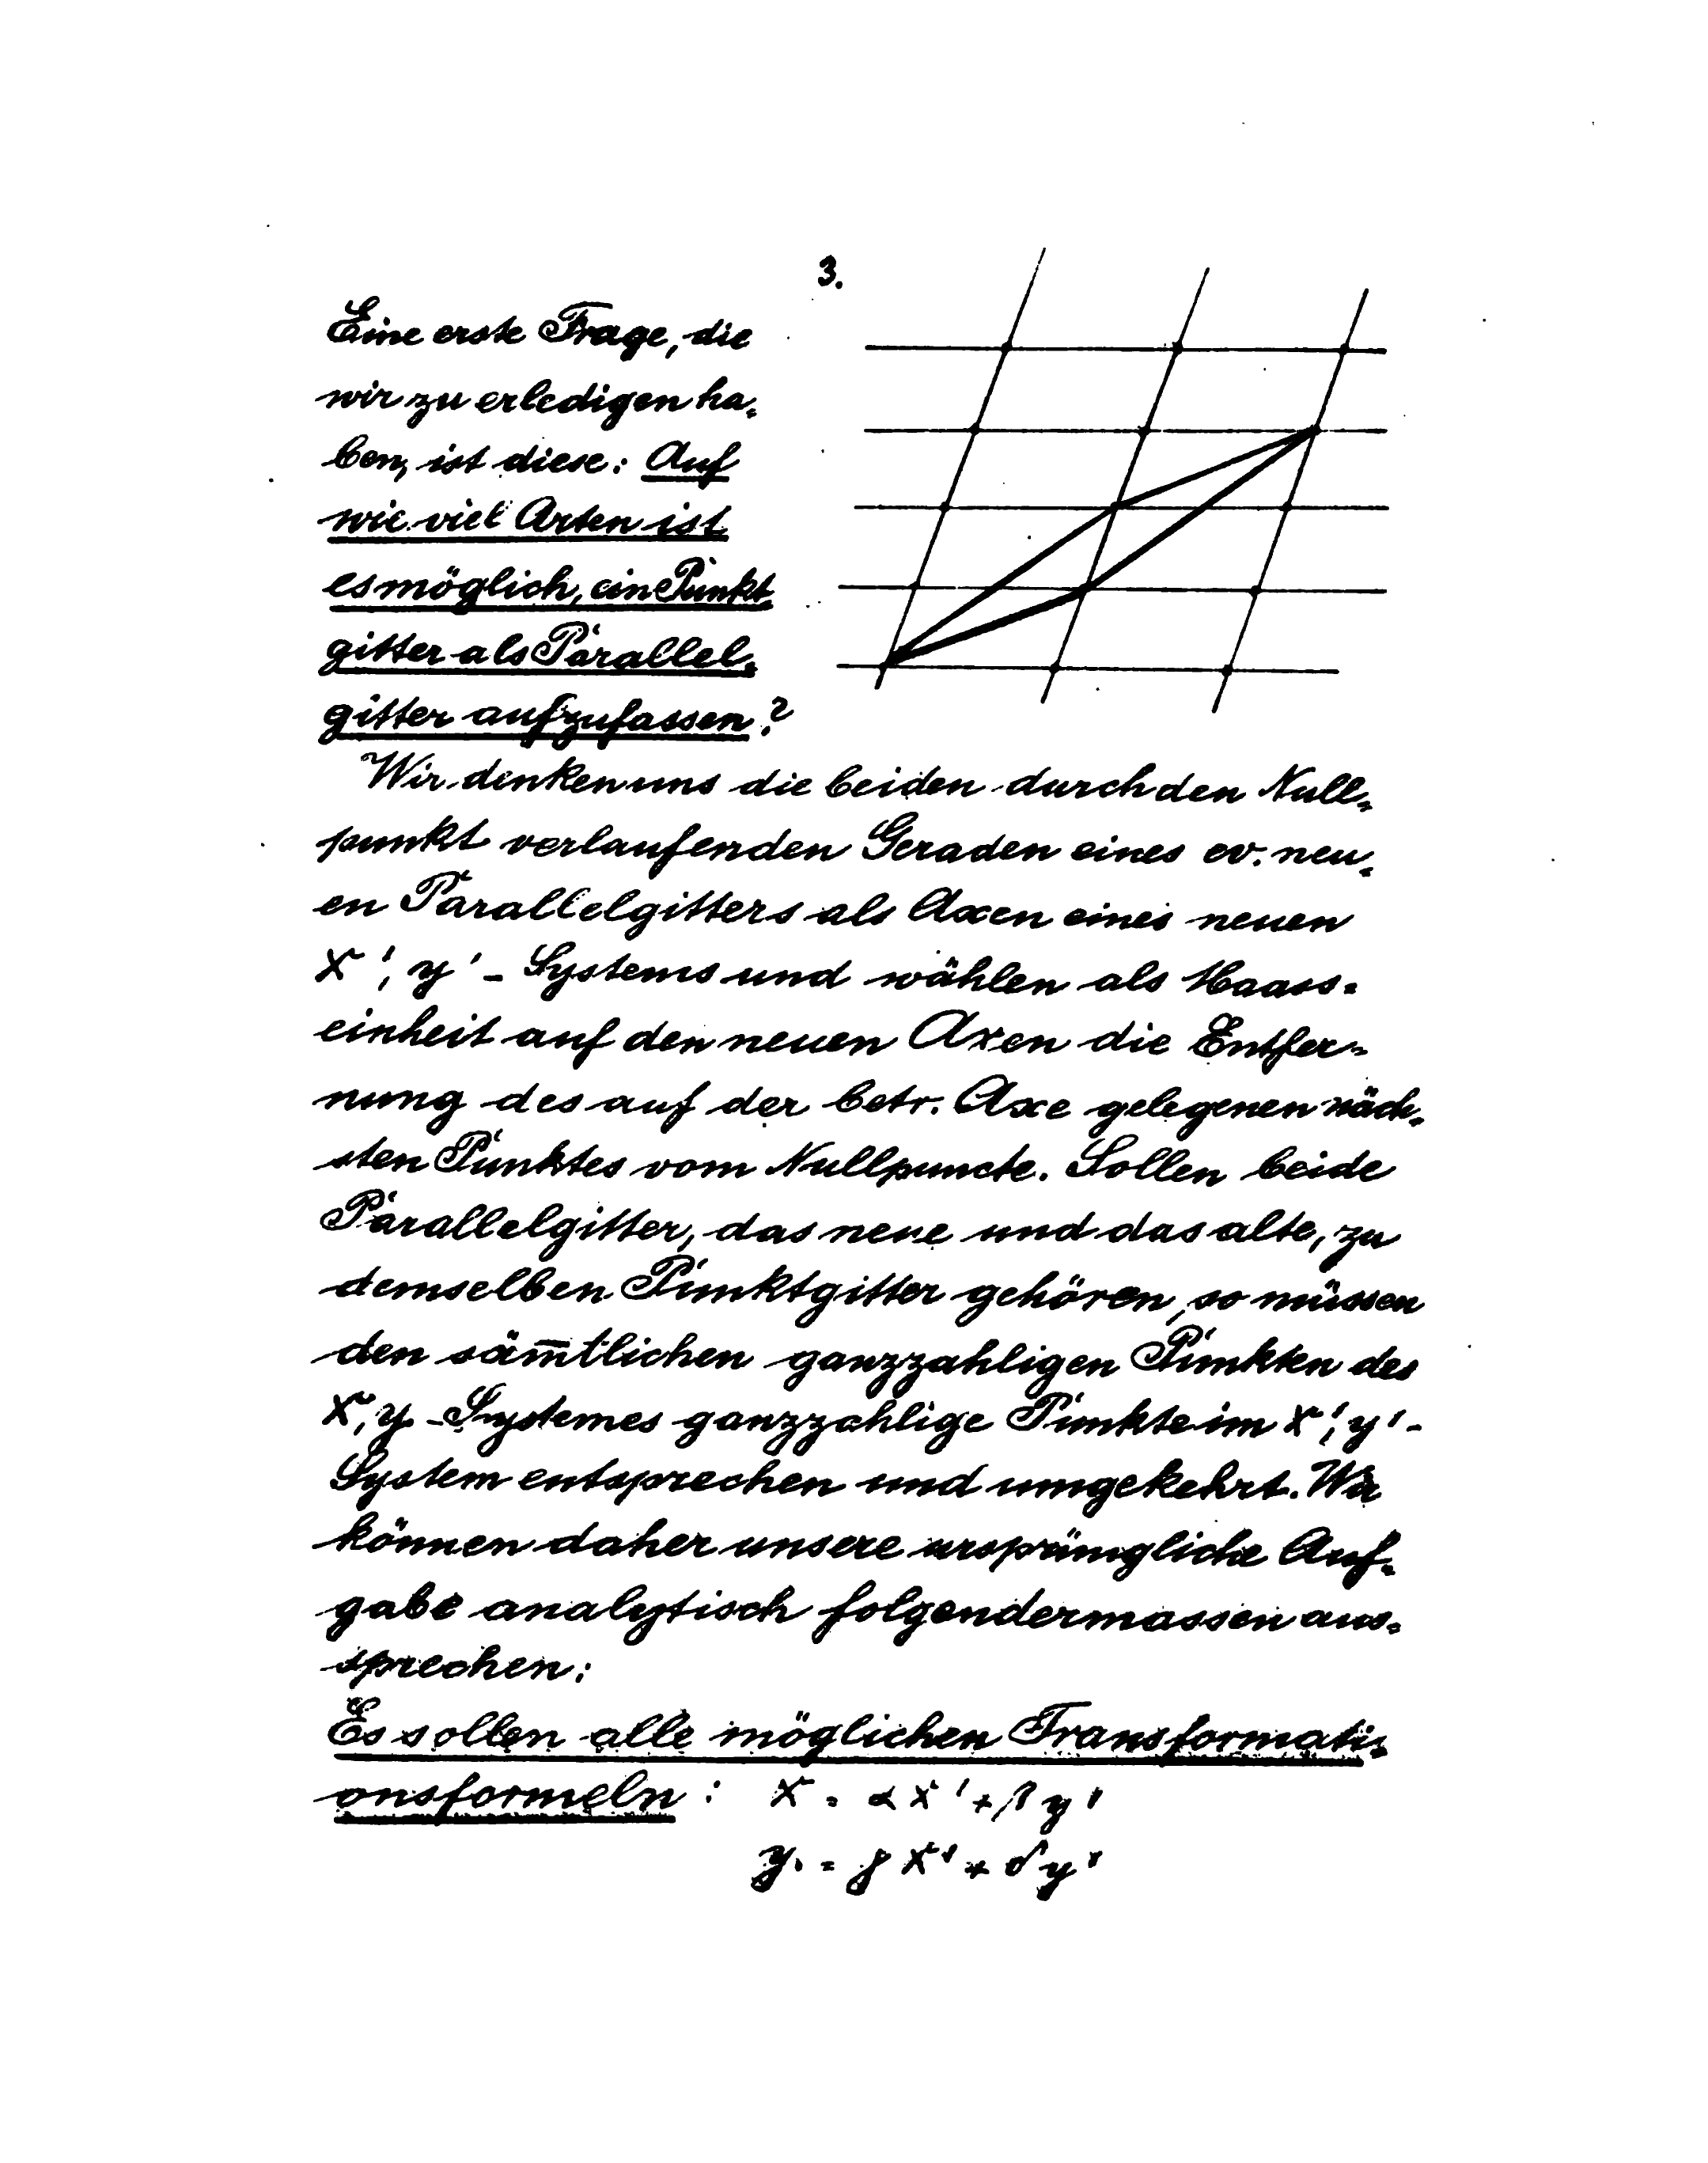 3.
Eine erste Frage, die
wir zu erledigen ha-
ben, ist diese: Auf
wie viel Arten ist
es möglich, ein Punkt-
gitter als Parallel-
gitter aufzufassen?
Wir denken uns die beiden durch den Null-
punkt verlaufenden Geraden eines ev. neu-
en Parallelgitters als Axen eines neuen
x', y' - Systems und wählen als Maass-
einheit auf den neuen Axen die Entfer-
nung des auf der betr. Axe gelegenen näch-
sten Punktes vom Nullpuncte. Sollen beide
Parallelgitter, das neue und das alte, zu
demselben Punktgitter gehören, so müssen
den säm̄tlichen ganzzahligen Punkten des
x, y - Systemes ganzzahlige Punkte im x', y' -
System entsprechen und umgekehrt. Wir
können daher unsere ursprüngliche Auf-
gabe analytisch folgendermassen aus-
sprechen:
Es sollen alle möglichen Transformati-
onsformeln: x = αx' + βy'
y = γx' + δy'